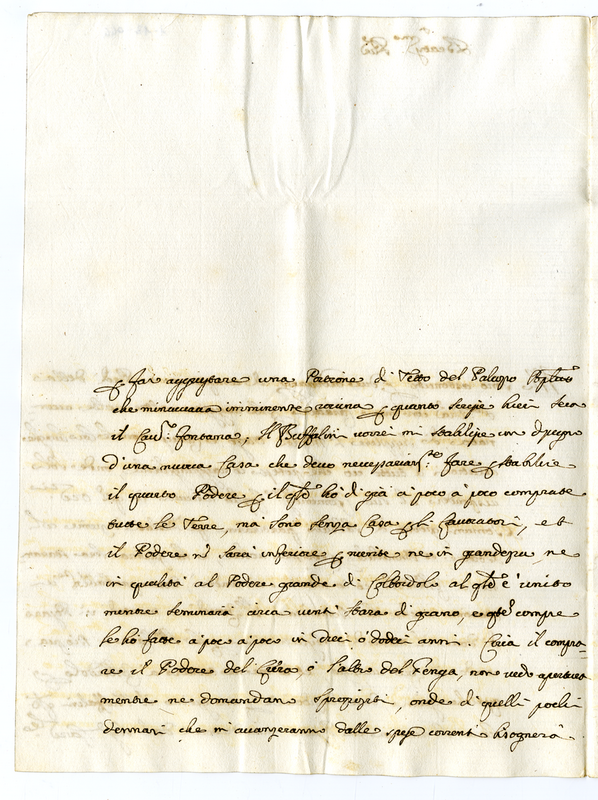 far aggiustare una Pattione di Tetto del Palazzo
che minacciava imminente rovina quanto scrisse hieri sera
il Cav.r Fontana; Il Buffalini vorrei mi stabilisse un disegno
d'una nuova Casa che devo necessariam.te fare stabilire
il quarto Podere il q.le hò di già à poco à poco comprate
tutte le Terre, ma sono senza Casa Lavoratori, et
il Podere n. sarà inferiore niente ne in grandezza, ne
in qualità al Podere grande di Colbordolo al q.le è unito
mentre seminarà circa venti stara di grano, e q.te compre
le hò fatte à poco à poco in dieci ò dodici anni. Circa il compra-
re il Podere del ò l'altro del non vedo apertura
mentre ne domandano spropositi, onde di quelli pochi
dennari che mi avanzeranno dalle spese correnti bisognerà